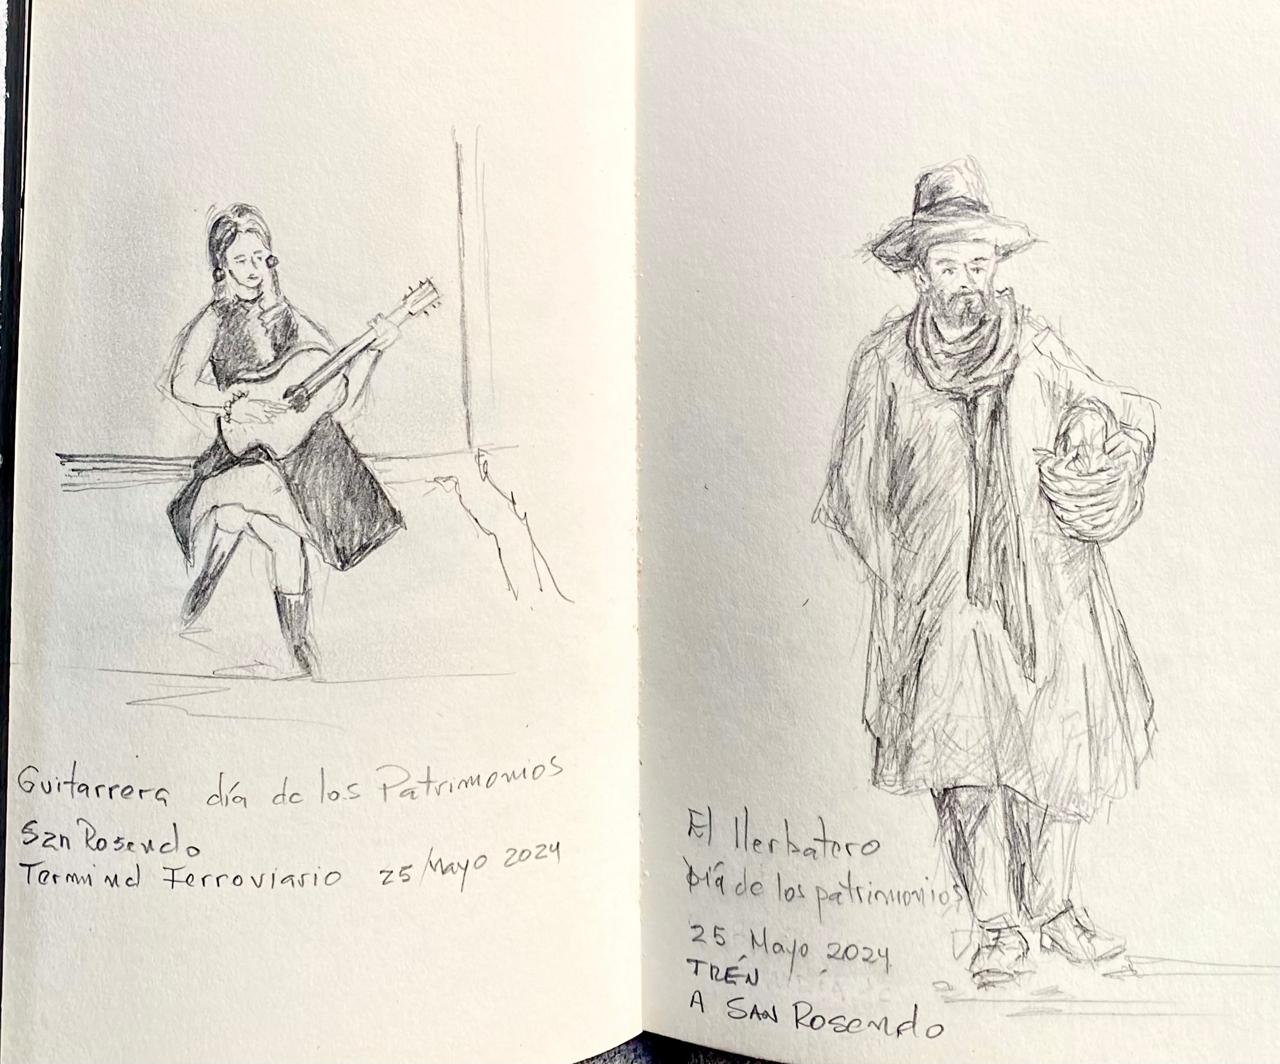 Guitarrera día de los Patrimonios
San Rosendo
Terminal Ferroviario 25/Mayo 2024
El Yerbatero
Día de los patrimonios
25 Mayo 2024
TRÉN
A SAN Rosendo